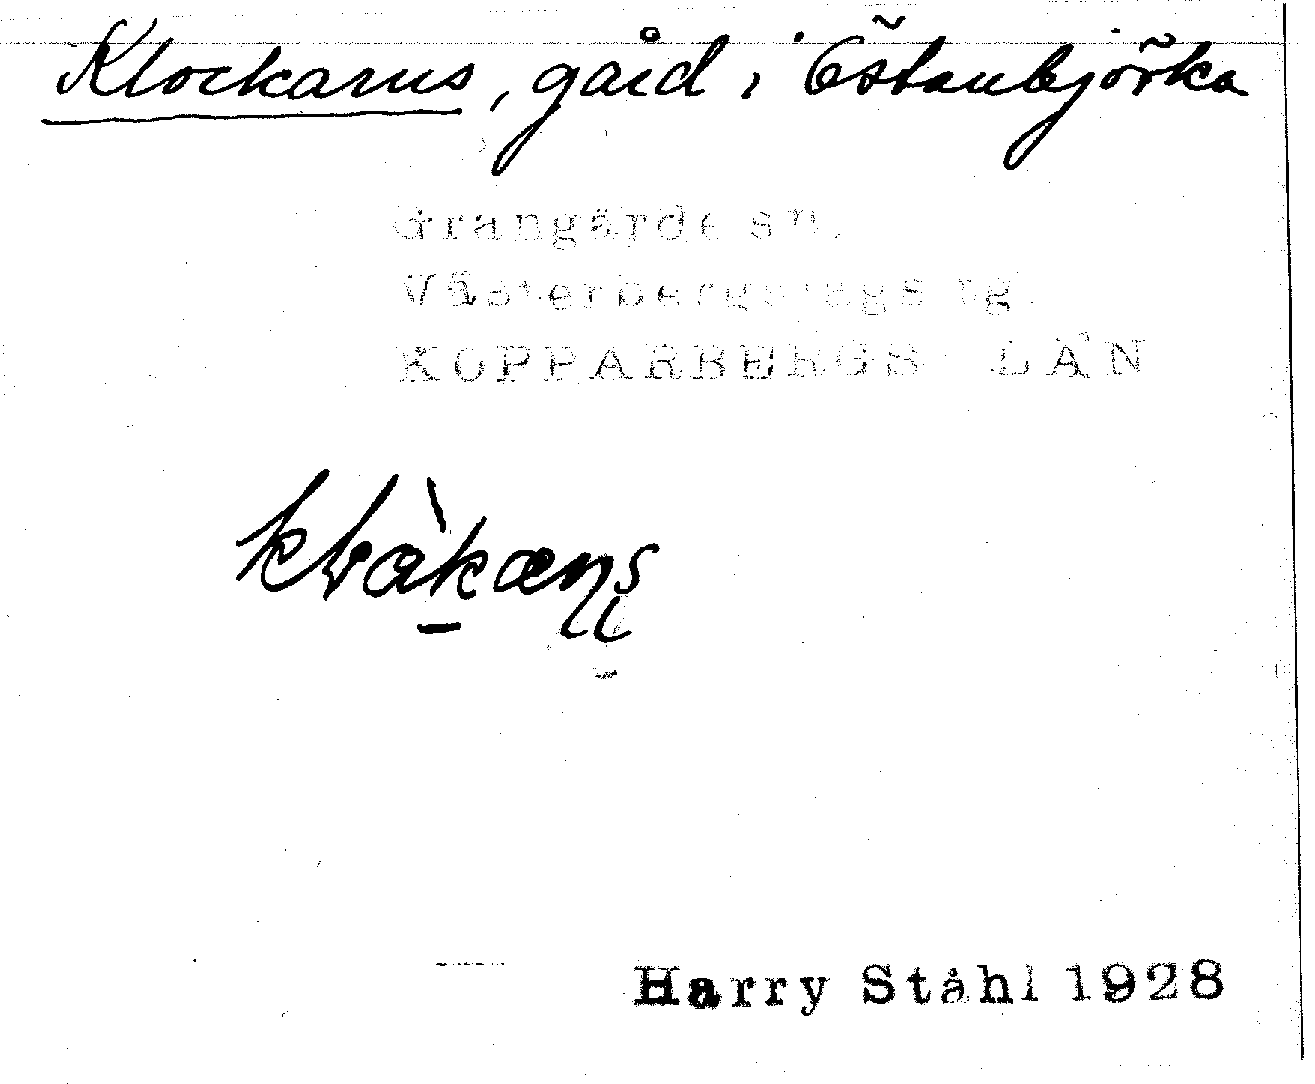 Klockarns, gård i Östanbjörka
Grangärde sn.
Västerbergslags tg.
KOPPARBERGS LÄN
Harry Ståhl 1928